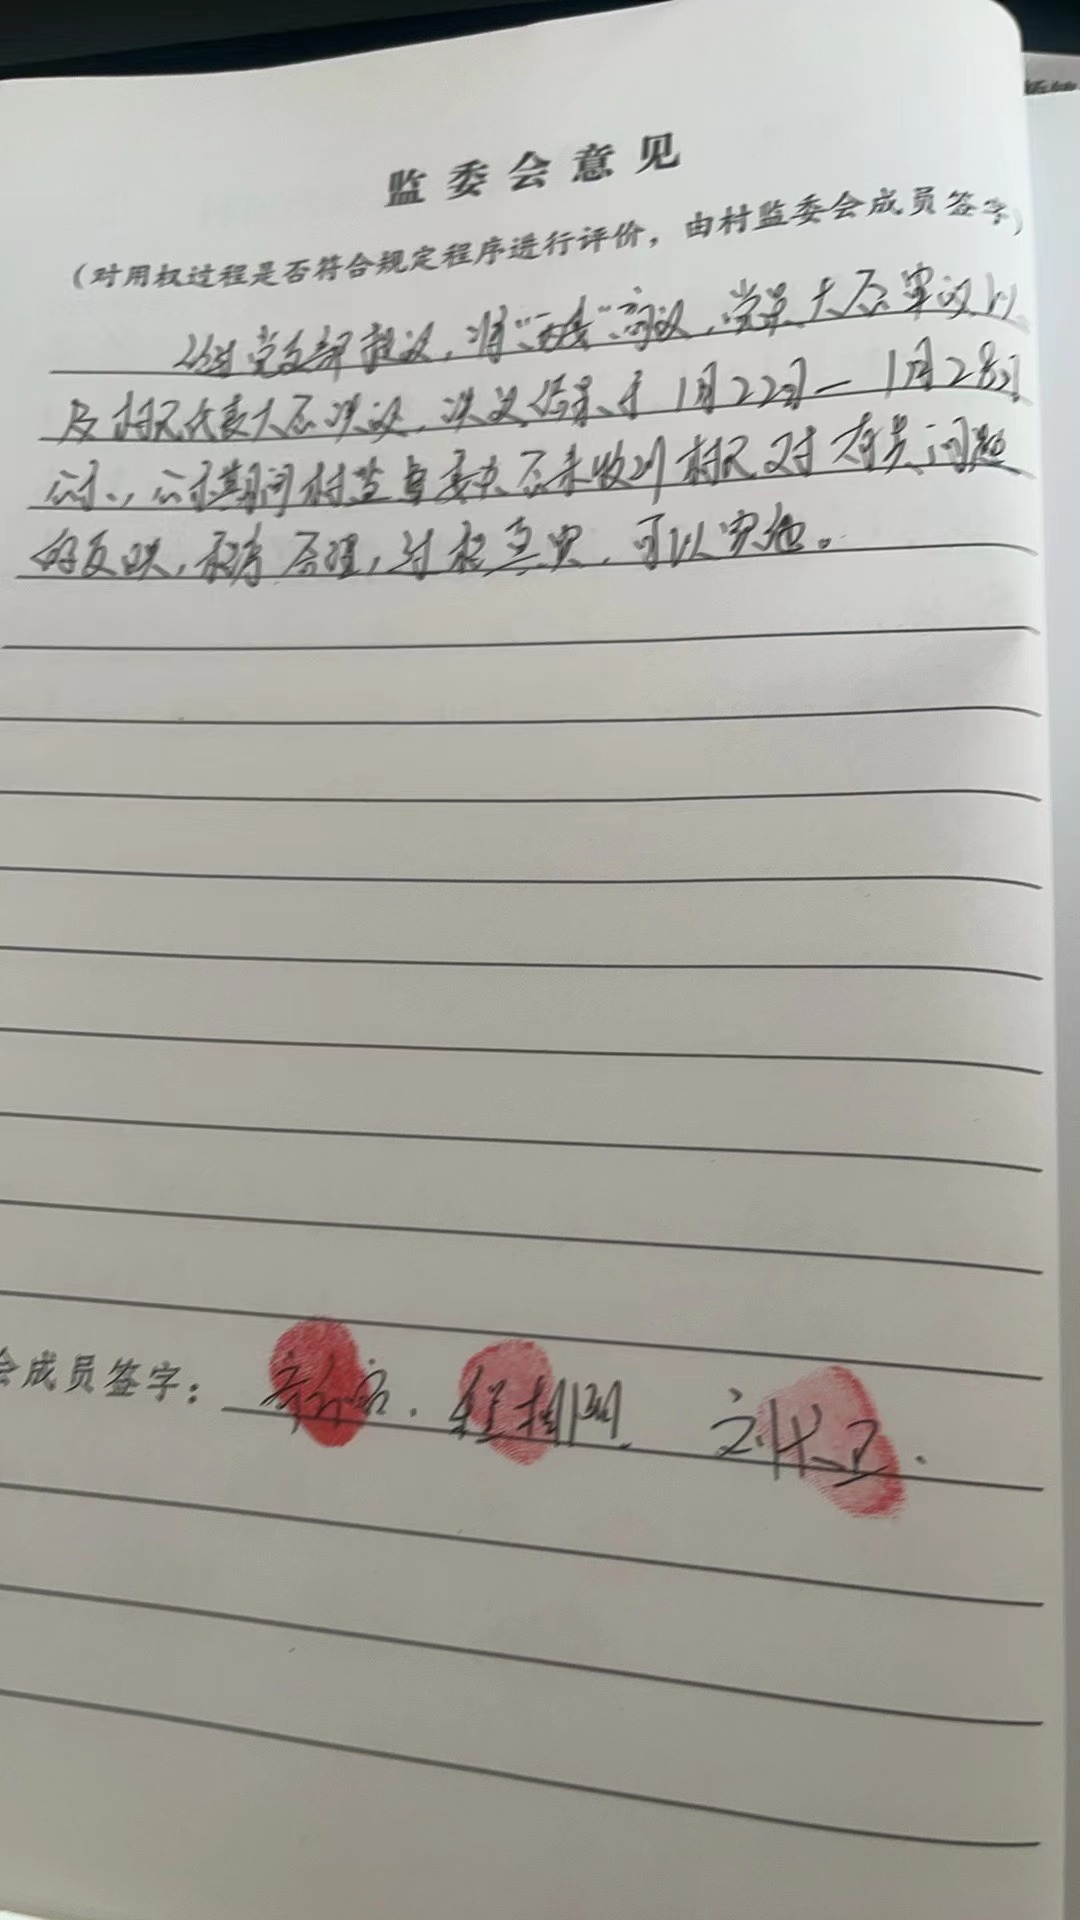 监委会意见
(对用权过程是否符合规定程序进行评价，由村监委会成员签字)
经过党支部提议，村“两委”商议，党员大会审议以
及村民代表大会决议，决议结果于1月22日—1月28日
公示，公示期间村监督委员会未收到村民对有关问题
的反映，程序合理，过程真实，可以实施。
会成员签字：